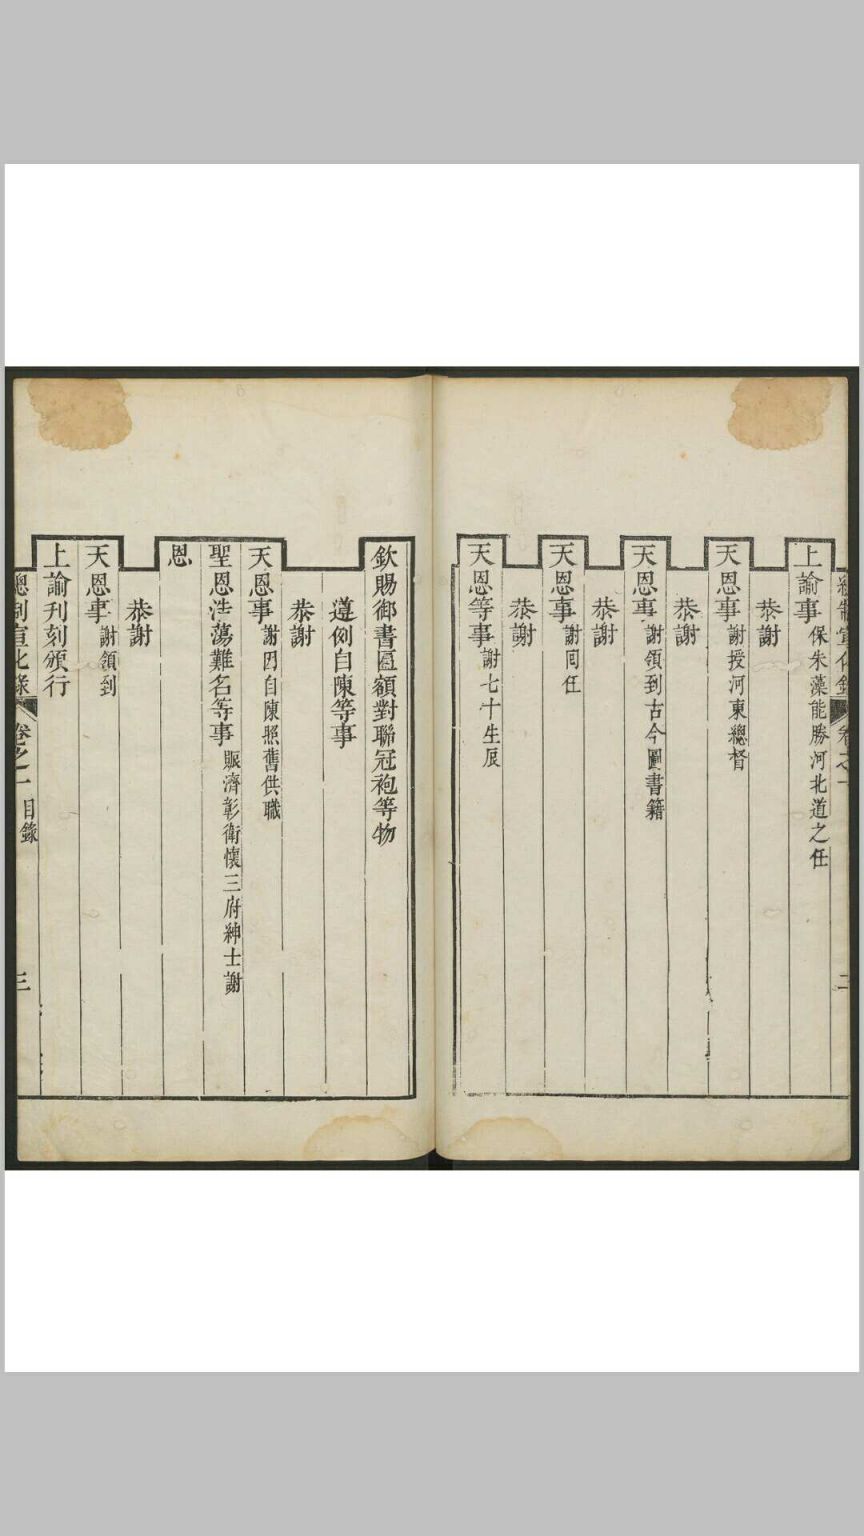 上諭事保朱藻能勝河北道之任
恭謝
天恩事謝授河東總督
恭謝
天恩事謝領到古今圖書籍
恭謝
天恩事謝回任
恭謝
天恩等事謝七十生辰
欽賜御書匾額對聯冠袍等物
遵例自陳等事
恭謝
天恩事謝因自陳照舊供職
聖恩浩蕩難名等事賑濟彰衛懷三府紳士謝
恩
恭謝
天恩事謝領到
上諭刋刻頒行
總制宣化錄 卷之一 目錄 三